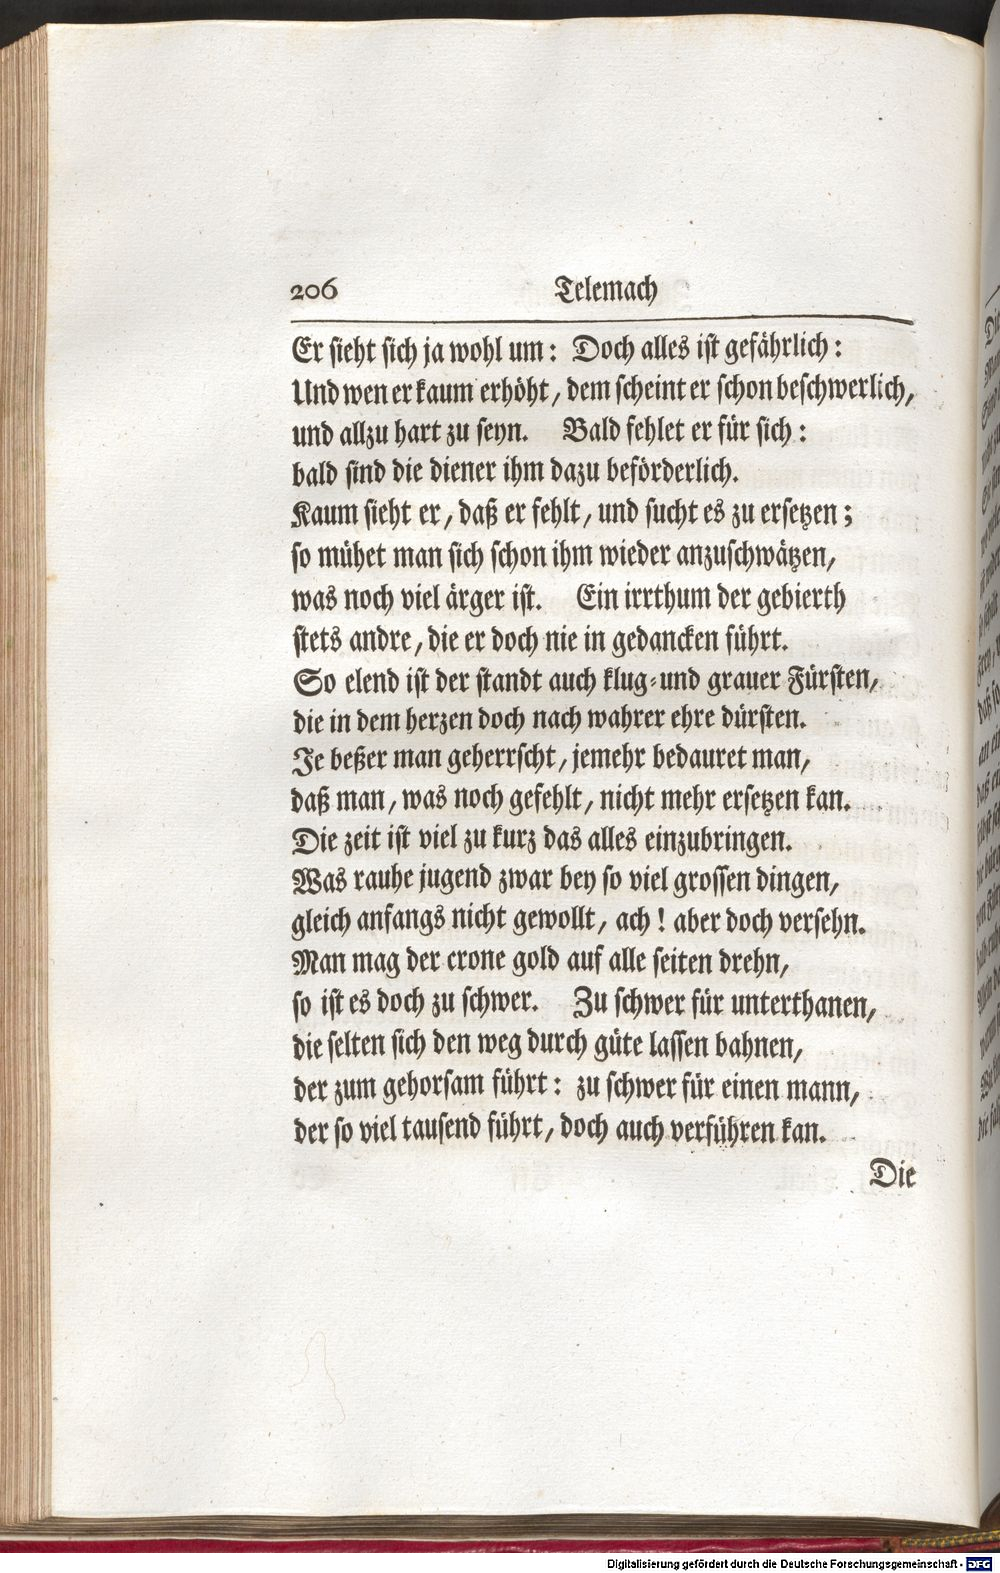 206 Telemach
Er sieht sich ja wohl um: Doch alles ist gefährlich:
Und wen er kaum erhöht, dem scheint er schon beschwerlich,
und allzu hart zu seyn. Bald fehlet er für sich:
bald sind die diener ihm dazu beförderlich.
Kaum sieht er, daß er fehlt, und sucht es zu ersetzen;
so mühet man sich schon ihm wieder anzuschwätzen,
was noch viel ärger ist. Ein irrthum der gebierth
stets andre, die er doch nie in gedancken führt.
So elend ist der standt auch klug-und grauer Fürsten,
die in dem herzen doch nach wahrer ehre dürsten.
Je beßer man geherrscht, jemehr bedauret man,
daß man, was noch gefehlt, nicht mehr ersetzen kan.
Die zeit ist viel zu kurz das alles einzubringen.
Was rauhe jugend zwar bey so viel grossen dingen,
gleich anfangs nicht gewollt, ach! aber doch versehn.
Man mag der crone gold auf alle seiten drehn,
so ist es doch zu schwer. Zu schwer für unterthanen,
die selten sich den weg durch güte lassen bahnen,
der zum gehorsam führt: zu schwer für einen mann,
der so viel tausend führt, doch auch verführen kan.
Die
Digitalisierung gefördert durch die Deutsche Forschungsgemeinschaft - DFG